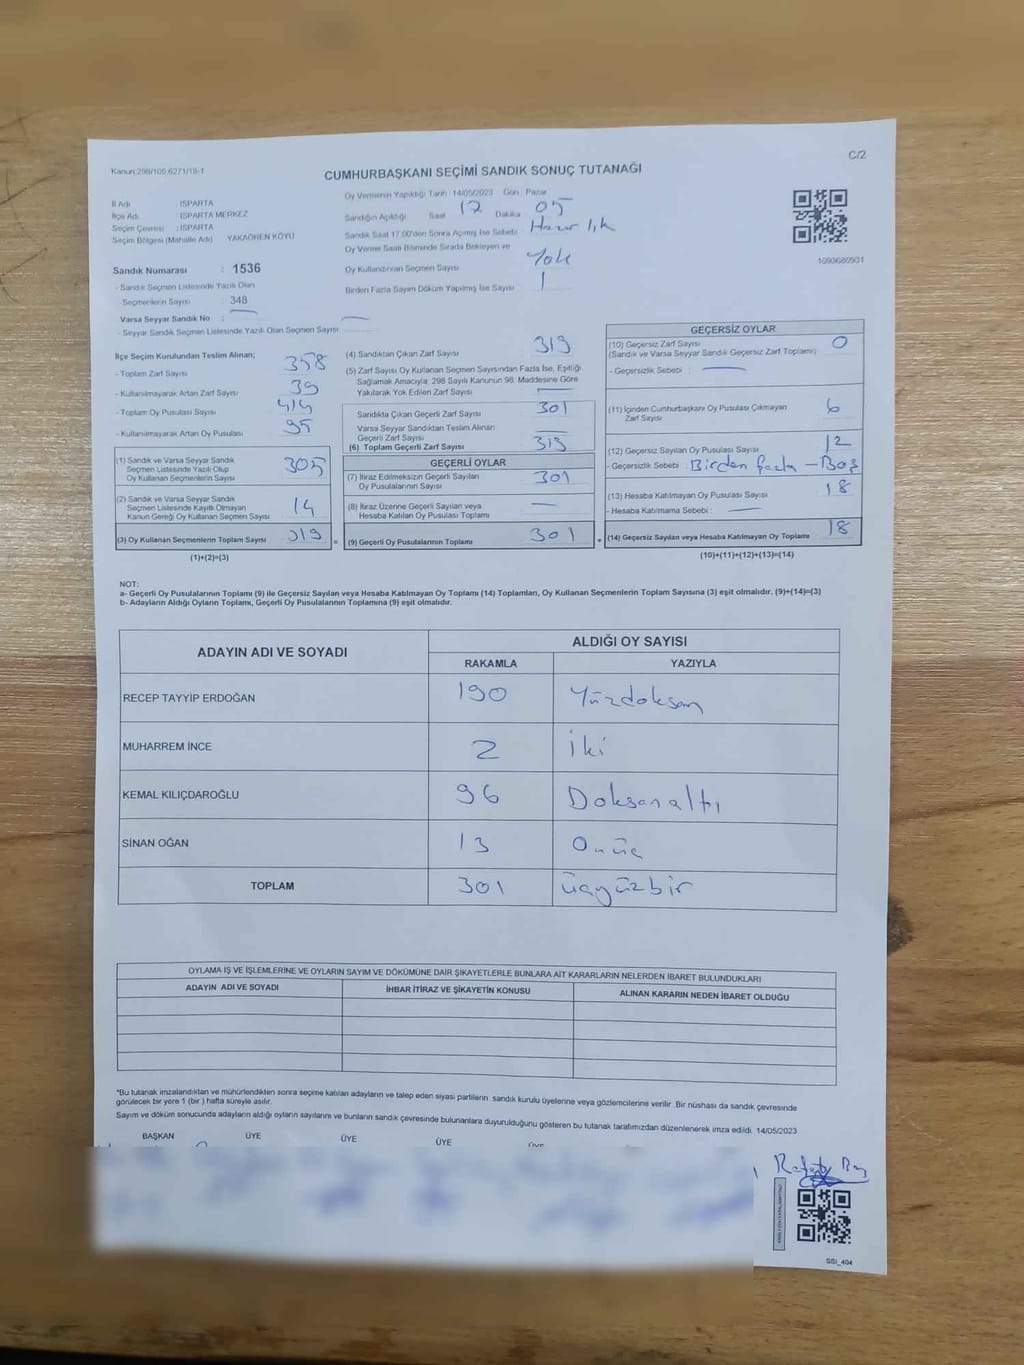 Kanun:298/105,6271/18-1
C/2
CUMHURBAŞKANI SEÇİMİ SANDIK SONUÇ TUTANAĞI
İl Adı : ISPARTA
İlçe Adı : ISPARTA MERKEZ
Seçim Çevresi : ISPARTA
Seçim Bölgesi (Mahalle Adı) YAKAÖREN KÖYÜ
Sandık Numarası : 1536
- Sandık Seçmen Listesinde Yazılı Olan
Seçmenlerin Sayısı : 348
Varsa Seyyar Sandık No : —
- Seyyar Sandık Seçmen Listesinde Yazılı Olan Seçmen Sayısı
Oy Vermenin Yapıldığı Tarih 14/05/2023 Gün Pazar
Sandığın Açıldığı Saat 17 Dakika 05
Sandık Saat 17.00'den Sonra Açılmış İse Sebebi Hazırlık
Oy Verme Saati Bitiminde Sırada Bekleyen ve
Oy Kullandırılan Seçmen Sayısı Yok
Birden Fazla Sayım Döküm Yapılmış İse Sayısı 1
1093680931
İlçe Seçim Kurulundan Teslim Alınan;
- Toplam Zarf Sayısı 358
- Kullanılmayarak Artan Zarf Sayısı 39
- Toplam Oy Pusulası Sayısı 414
- Kullanılmayarak Artan Oy Pusulası 95
(1) Sandık ve Varsa Seyyar Sandık
Seçmen Listesinde Yazılı Olup
Oy Kullanan Seçmenlerin Sayısı 305
(2) Sandık ve Varsa Seyyar Sandık
Seçmen Listesinde Kayıtlı Olmayan
Kanun Gereği Oy Kullanan Seçmen Sayısı 14
(3) Oy Kullanan Seçmenlerin Toplam Sayısı 319
(1)+(2)=(3)
(4) Sandıktan Çıkan Zarf Sayısı 319
(5) Zarf Sayısı Oy Kullanan Seçmen Sayısından Fazla İse, Eşitliği
Sağlamak Amacıyla; 298 Sayılı Kanunun 98. Maddesine Göre
Yakılarak Yok Edilen Zarf Sayısı —
Sandıkta Çıkan Geçerli Zarf Sayısı 301
Varsa Seyyar Sandıktan Teslim Alınan
Geçerli Zarf Sayısı
(6) Toplam Geçerli Zarf Sayısı 319
GEÇERLİ OYLAR
(7) İtiraz Edilmeksizin Geçerli Sayılan
Oy Pusulalarının Sayısı 301
(8) İtiraz Üzerine Geçerli Sayılan veya
Hesaba Katılan Oy Pusulası Toplamı —
= (9) Geçerli Oy Pusulalarının Toplamı 301 +
GEÇERSİZ OYLAR
(10) Geçersiz Zarf Sayısı 0
(Sandık ve Varsa Seyyar Sandık Geçersiz Zarf Toplamı)
- Geçersizlik Sebebi : —
(11) İçinden Cumhurbaşkanı Oy Pusulası Çıkmayan 6
Zarf Sayısı
(12) Geçersiz Sayılan Oy Pusulası Sayısı 12
- Geçersizlik Sebebi Birden fazla - Boş
(13) Hesaba Katılmayan Oy Pusulası Sayısı 18
- Hesaba Katılmama Sebebi : —
(14) Geçersiz Sayılan veya Hesaba Katılmayan Oy Toplamı 18
(10)+(11)+(12)+(13)=(14)
NOT:
a- Geçerli Oy Pusulalarının Toplamı (9) ile Geçersiz Sayılan veya Hesaba Katılmayan Oy Toplamı (14) Toplamları, Oy Kullanan Seçmenlerin Toplam Sayısına (3) eşit olmalıdır. (9)+(14)=(3)
b- Adayların Aldığı Oyların Toplamı, Geçerli Oy Pusulalarının Toplamına (9) eşit olmalıdır.
ADAYIN ADI VE SOYADI ALDIĞI OY SAYISI
RAKAMLA YAZIYLA
RECEP TAYYİP ERDOĞAN 190 Yüzdoksan
MUHARREM İNCE 2 İki
KEMAL KILIÇDAROĞLU 96 Doksanaltı
SİNAN OĞAN 13 Onüç
TOPLAM 301 üçyüzbir
OYLAMA İŞ VE İŞLEMLERİNE VE OYLARIN SAYIM VE DÖKÜMÜNE DAİR ŞİKAYETLERLE BUNLARA AİT KARARLARIN NELERDEN İBARET BULUNDUKLARI
ADAYIN ADI VE SOYADI İHBAR İTİRAZ VE ŞİKAYETİN KONUSU ALINAN KARARIN NEDEN İBARET OLDUĞU
*Bu tutanak imzalandıktan ve mühürlendikten sonra seçime katılan adayların ve talep eden siyasi partilerin sandık kurulu üyelerine veya gözlemcilerine verilir. Bir nüshası da sandık çevresinde
görülecek bir yere 1 (bir ) hafta süreyle asılır.
Sayım ve döküm sonucunda adayların aldığı oyların sayılarını ve bunların sandık çevresinde bulunanlara duyurulduğunu gösteren bu tutanak tarafımızdan düzenlenerek imza edildi. 14/05/2023
BAŞKAN ÜYE ÜYE ÜYE ÜYE
SSI_404